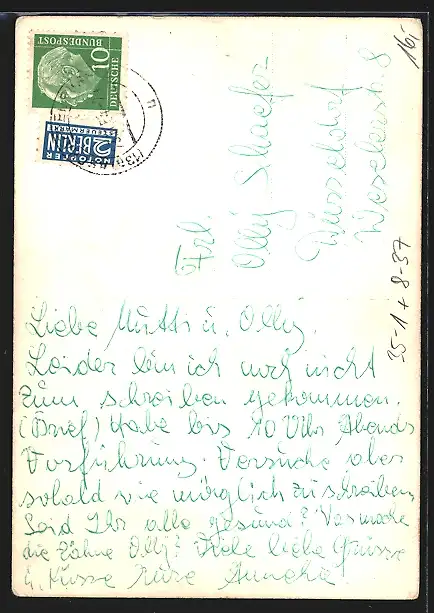 DEUTSCHE
BUNDESPOST
10
NOTOPFER
2 BERLIN
STEUERMARKE
16,-
Frl.
Olly Schaefer
Düsseldorf
8
35-1 + 8-37
Liebe Mutti u. Olly.
Leider bin ich noch nicht
zum schreiben gekommen.
(Brief) Habe bis 10 Uhr Abends
Vorführung. Versuche aber
sobald wie möglich zu schreiben,
Seid Ihr alle gesund? Was mache
die Zähne Olly? Viele liebe Grüsse
u. Küsse Eure